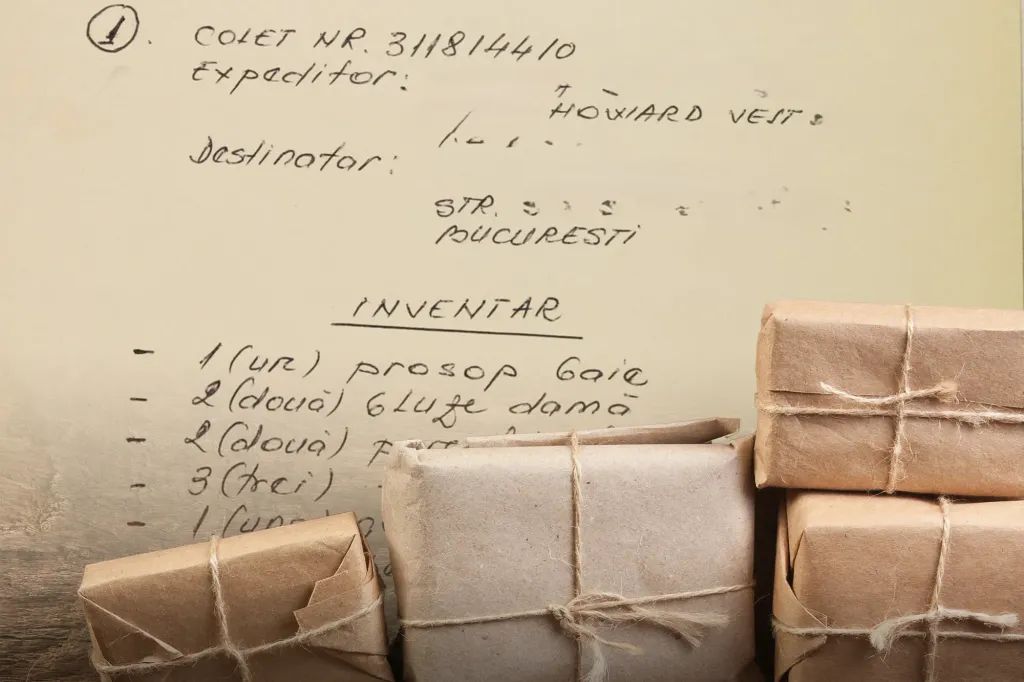 1.
COLET NR. 311814410
Expeditor:
HOWARD VEST
Destinatar:
STR.
BUCURESTI
INVENTAR
- 1 (un) prosop baie
- 2 (două) bluze damă
- 2 (două)
- 3 (trei)
- 1 (una)